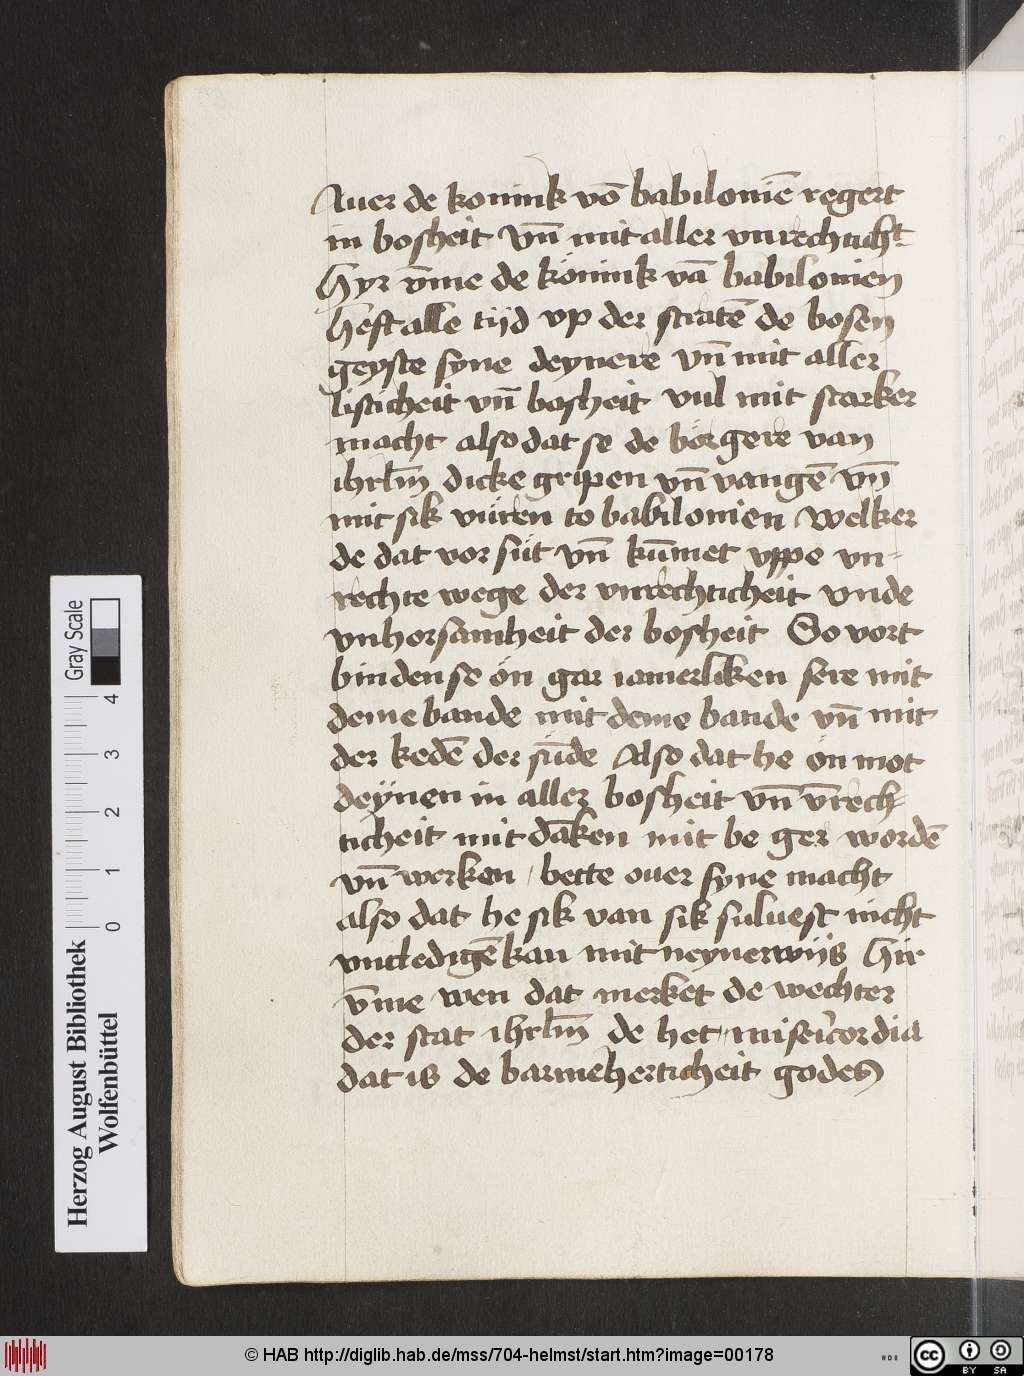 Auer de konink vō babiloniē regert
in bosheit vn̄ mit aller vnrechticht
Hyr v̄me de kȯnink vā babilonien
Heft alle tijd vp der stratē de bosen
geyste syne deynere vn̄ mit aller
listicheit vn̄ bosheit vul mit starker
macht also dat se de bȯrgere van
ihrlm̄ dicke gripen vn̄ vangē vn̄
mit sik vüren to babilonien welker
de dat vor süt vn̄ kūmet vppe vn-
rechte wege der vnrechticheit vnde
vnhorsamheit der bosheit So vort
binden se ȯn gar iamerliken sere mit
deme bande mit deme bande vn̄ mit
der kedē der sūde Also dat he ȯn mot
deÿnen in aller bosheit vn̄ v̄rech-
ticheit mit dāken mit be ger wordē
vn̄ werken / bette ouer syne macht
also dat he sik van sik suluest nicht
vntledigē kan mit neynerwijs Hir
v̄me wen dat merket de wechter
der stat ihrlm̄ de het misericordia
dat is de barmeherticheit godes
Herzog August Bibliothek
Wolfenbüttel
0 1 2 3 4
Gray Scale
© HAB http://diglib.hab.de/mss/704-helmst/start.htm?image=00178
cc BY SA